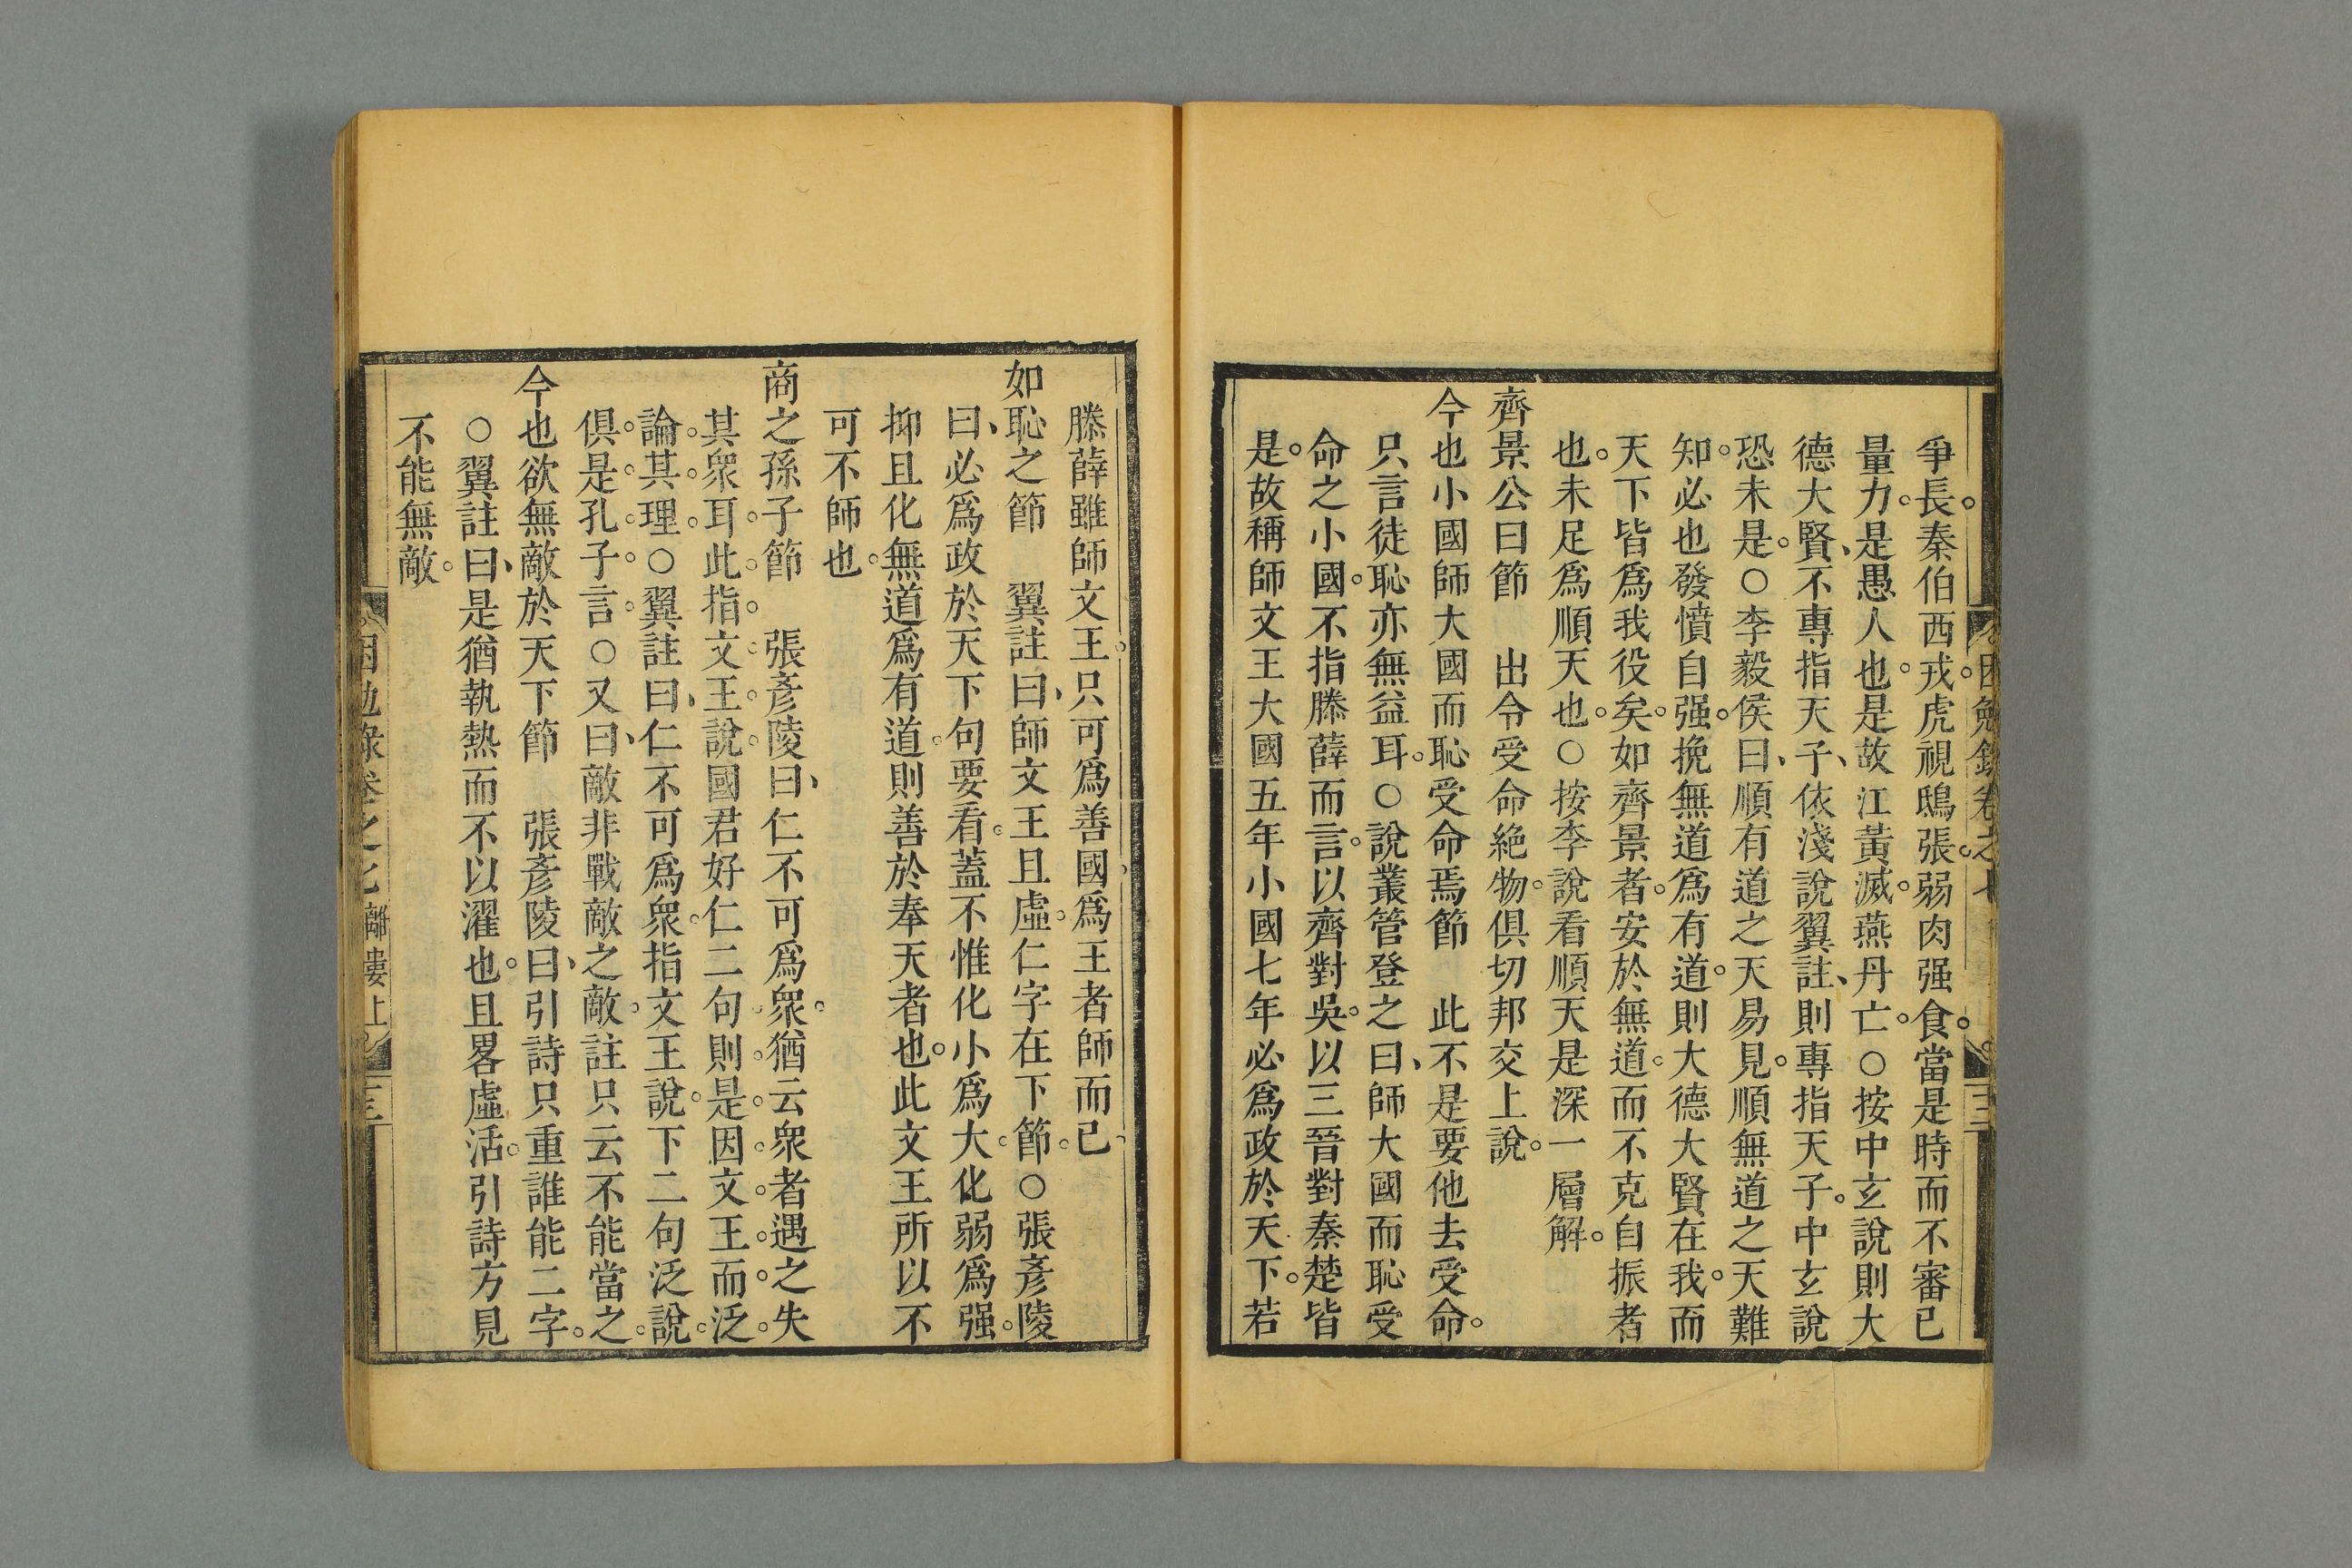 困勉錄卷之七
爭長秦伯西戎虎視鴟張弱肉强食當是時而不審已
量力是愚人也是故江黃滅燕丹亡○按中玄說則大
德大賢不專指天子依淺說翼註則專指天子中玄說
恐未是○李毅侯曰順有道之天易見順無道之天難
知必也發憤自强挽無道爲有道則大德大賢在我而
天下皆爲我役矣如齊景者安於無道而不克自振者
也未足爲順天也○按李說看順天是深一層解
齊景公曰節　出令受命絶物俱切邦交上說
今也小國師大國而恥受命焉節　此不是要他去受命
只言徒恥亦無益耳○說叢管登之曰師大國而恥受
命之小國不指滕薛而言以齊對吳以三晉對秦楚皆
是故稱師文王大國五年小國七年必爲政於天下若
滕薛雖師文王只可爲善國爲王者師而已
如恥之節　翼註曰師文王且虛仁字在下節○張彥陵
曰必爲政於天下句要看蓋不惟化小爲大化弱爲强
抑且化無道爲有道則善於奉天者也此文王所以不
可不師也
商之孫子節　張彥陵曰仁不可爲衆猶云衆者遇之失
其衆耳此指文王說國君好仁二句則是因文王而泛
論其理○翼註曰仁不可爲衆指文王說下二句泛說
俱是孔子言○又曰敵非戰敵之敵註只云不能當之
今也欲無敵於天下節　張彥陵曰引詩只重誰能二字
○翼註曰是猶執熱而不以濯也且畧虛活引詩方見
不能無敵
困勉錄卷之七　離婁上　三